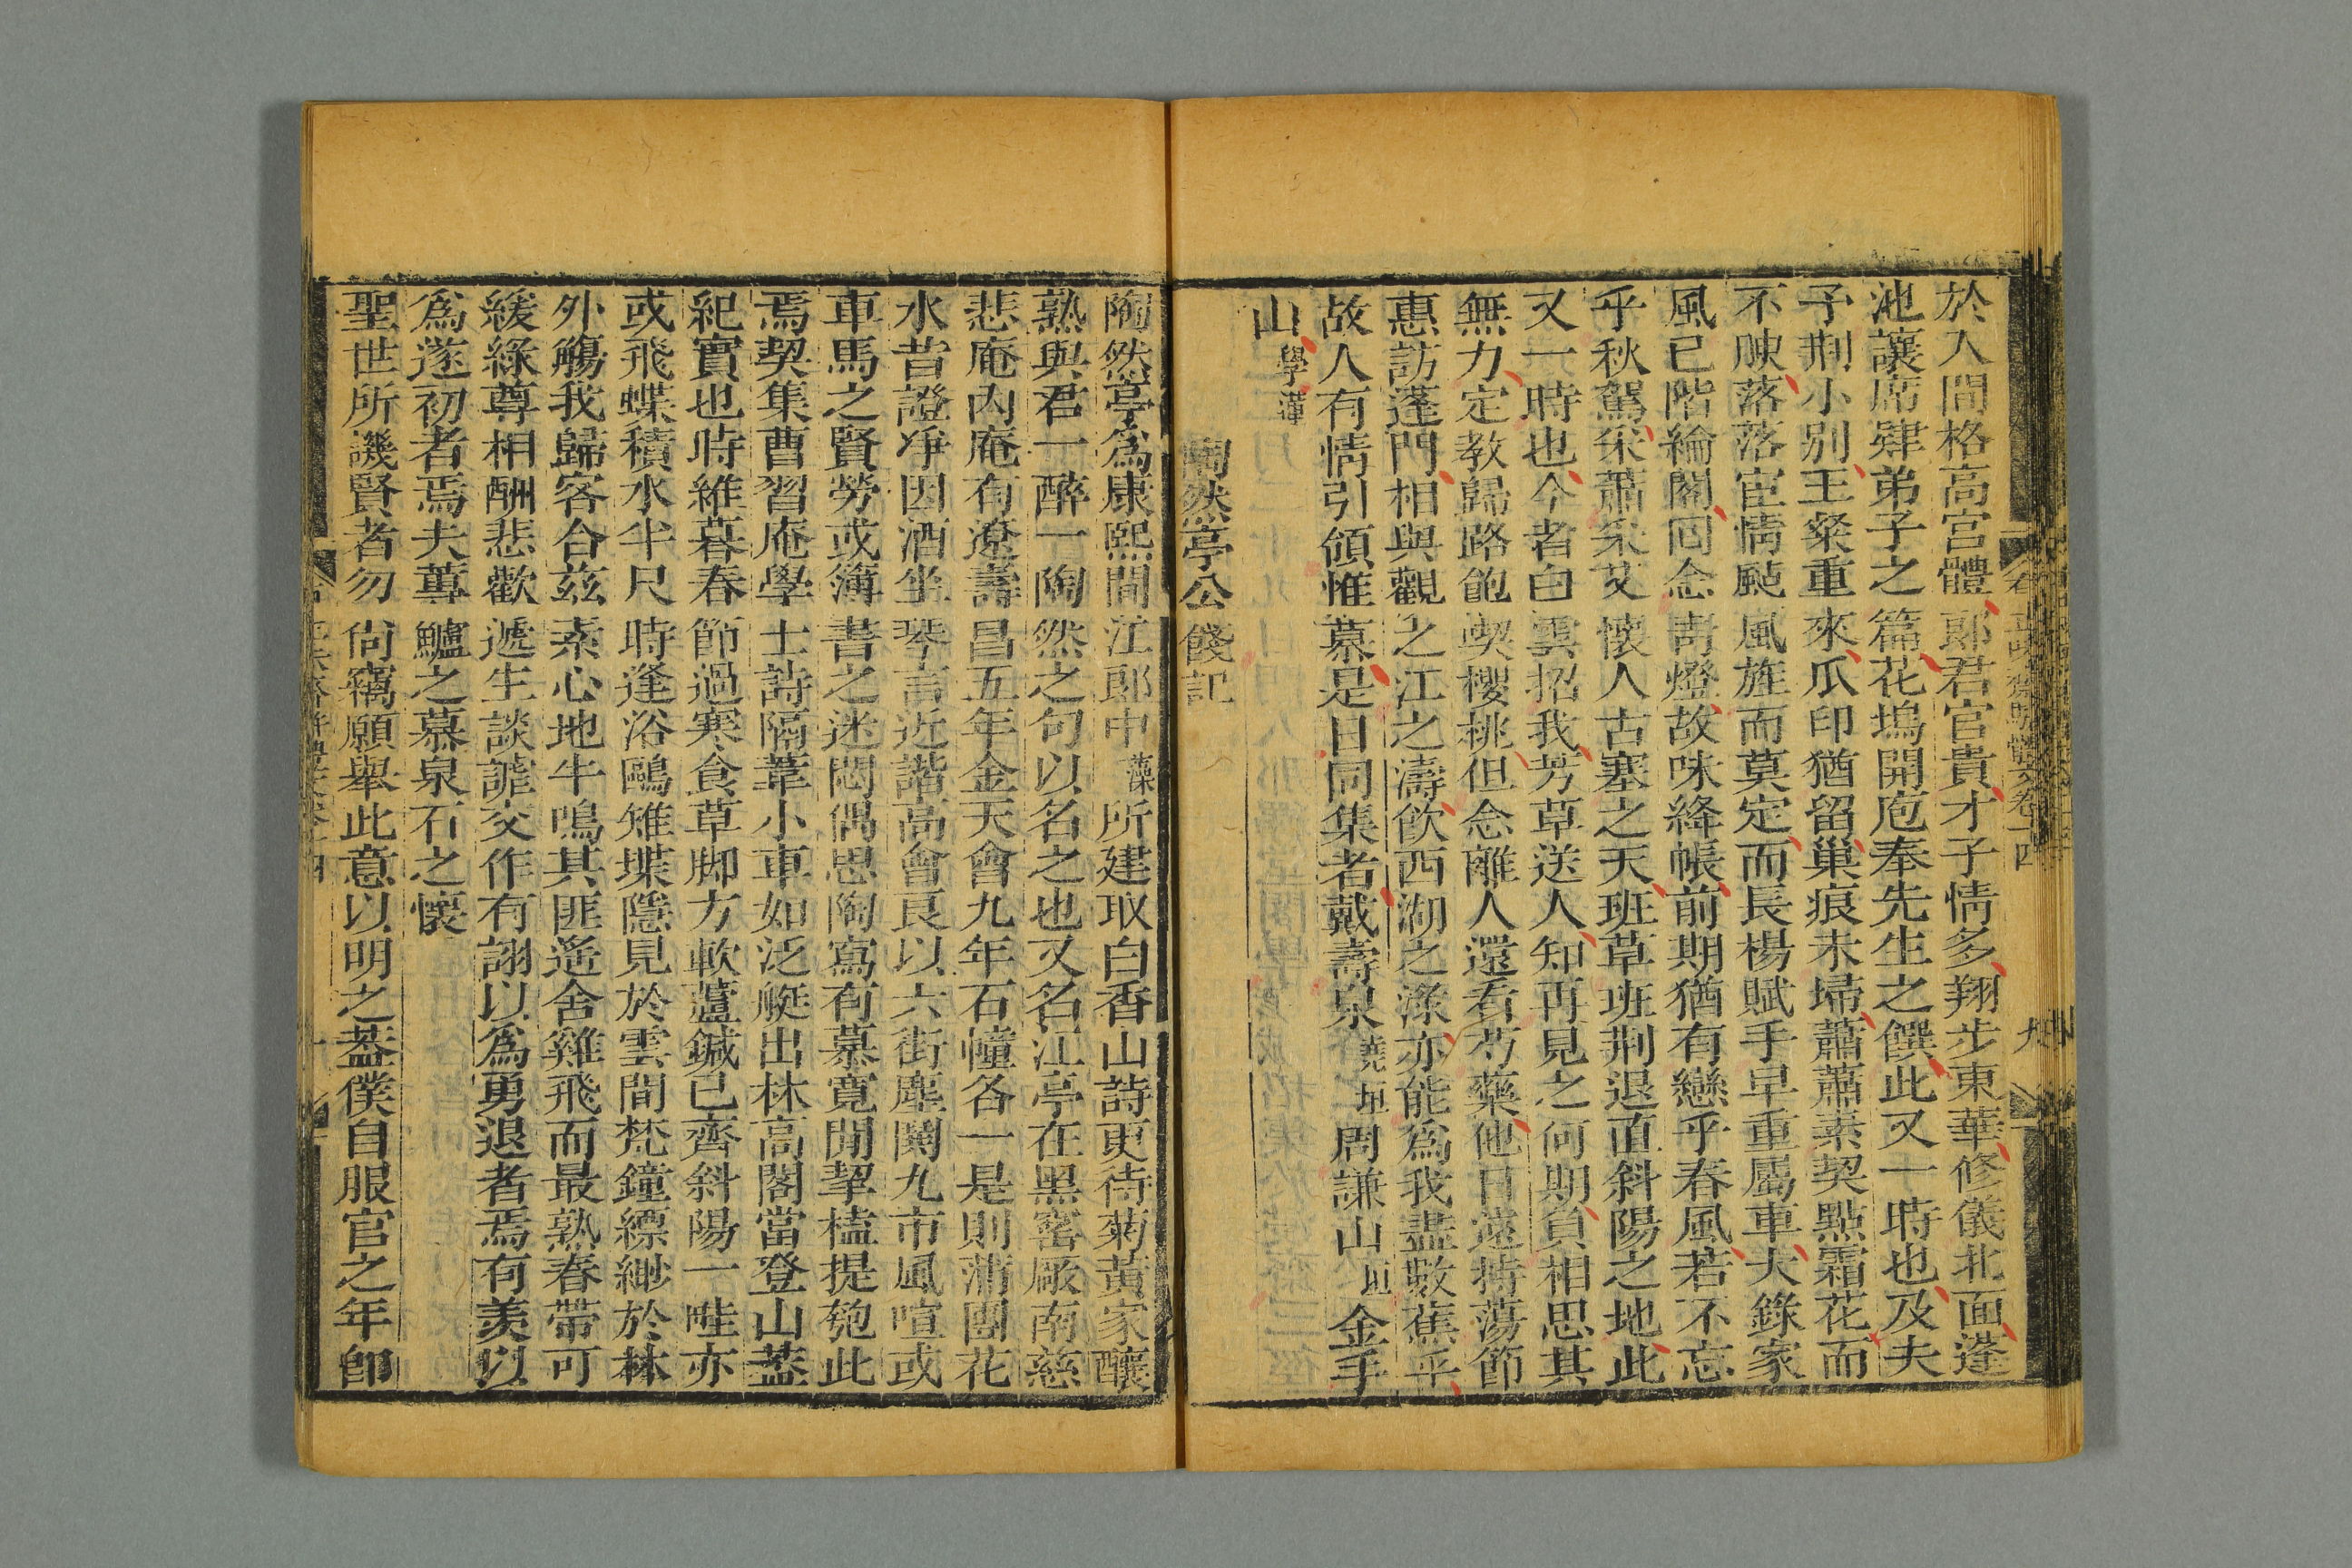 於入間格高宮體郎君官貴才子情多翔步東華修儀北面蓬
池讓席肄弟子之篇花塢開庖奉先生之饌此又一時也及夫
子荆小別王粲重來爪印猶留巢痕未埽蕭蕭素契點霜花而
不腴落落宦情颭風旌而莫定而長楊賦手早重屬車大錄家
風已階綸閣回念青燈故味絳帳前期猶有戀乎春風若不忘
乎秋駕采蕭采艾懷人古塞之天班草班荆退直斜陽之地此
又一時也今者白雲招我芳草送人知再見之何期負相思其
無力定教歸路飽喫櫻桃但念離人還看芍藥他日遠持蕩節
惠訪蓬門相與觀之江之濤飲西湖之淥亦能爲我盡數蕉平
故人有情引領惟慕是日同集者戴壽泉堯垣周謙山垣金手
山學蓮
陶然亭公餞記
陶然亭爲康熙間江郎中藻所建取白香山詩更待菊黃家釀
熟與君一醉一陶然之句以名之也又名江亭在黑窰厰南慈
悲庵內庵有遼壽昌五年金天會九年石幢各一是則蒲團花
水昔證淨因酒坐琴言近諧高會良以六街塵闐九市風喧或
車馬之賢勞或簿書之迷悶偶思陶寫有慕寛閒挈榼提匏此
焉契集曹習庵學士詩隔葦小車如泛艇出林高閣當登山蓋
紀實也時維暮春節過寒食草脚方軟蘆鍼已齊斜陽一畦亦
或飛蝶積水半尺時逢浴鷗雉堞隱見於雲間梵鐘縹緲於林
外觴我歸客合茲素心地牛鳴其匪遙舍雞飛而最熟春帶可
緩綠尊相酬悲歡遞生談謔交作有詡以爲勇退者焉有羨以
爲遂初者焉夫蓴鱸之慕泉石之懷
聖世所譏賢者勿尙竊願舉此意以明之蓋僕自服官之年卽